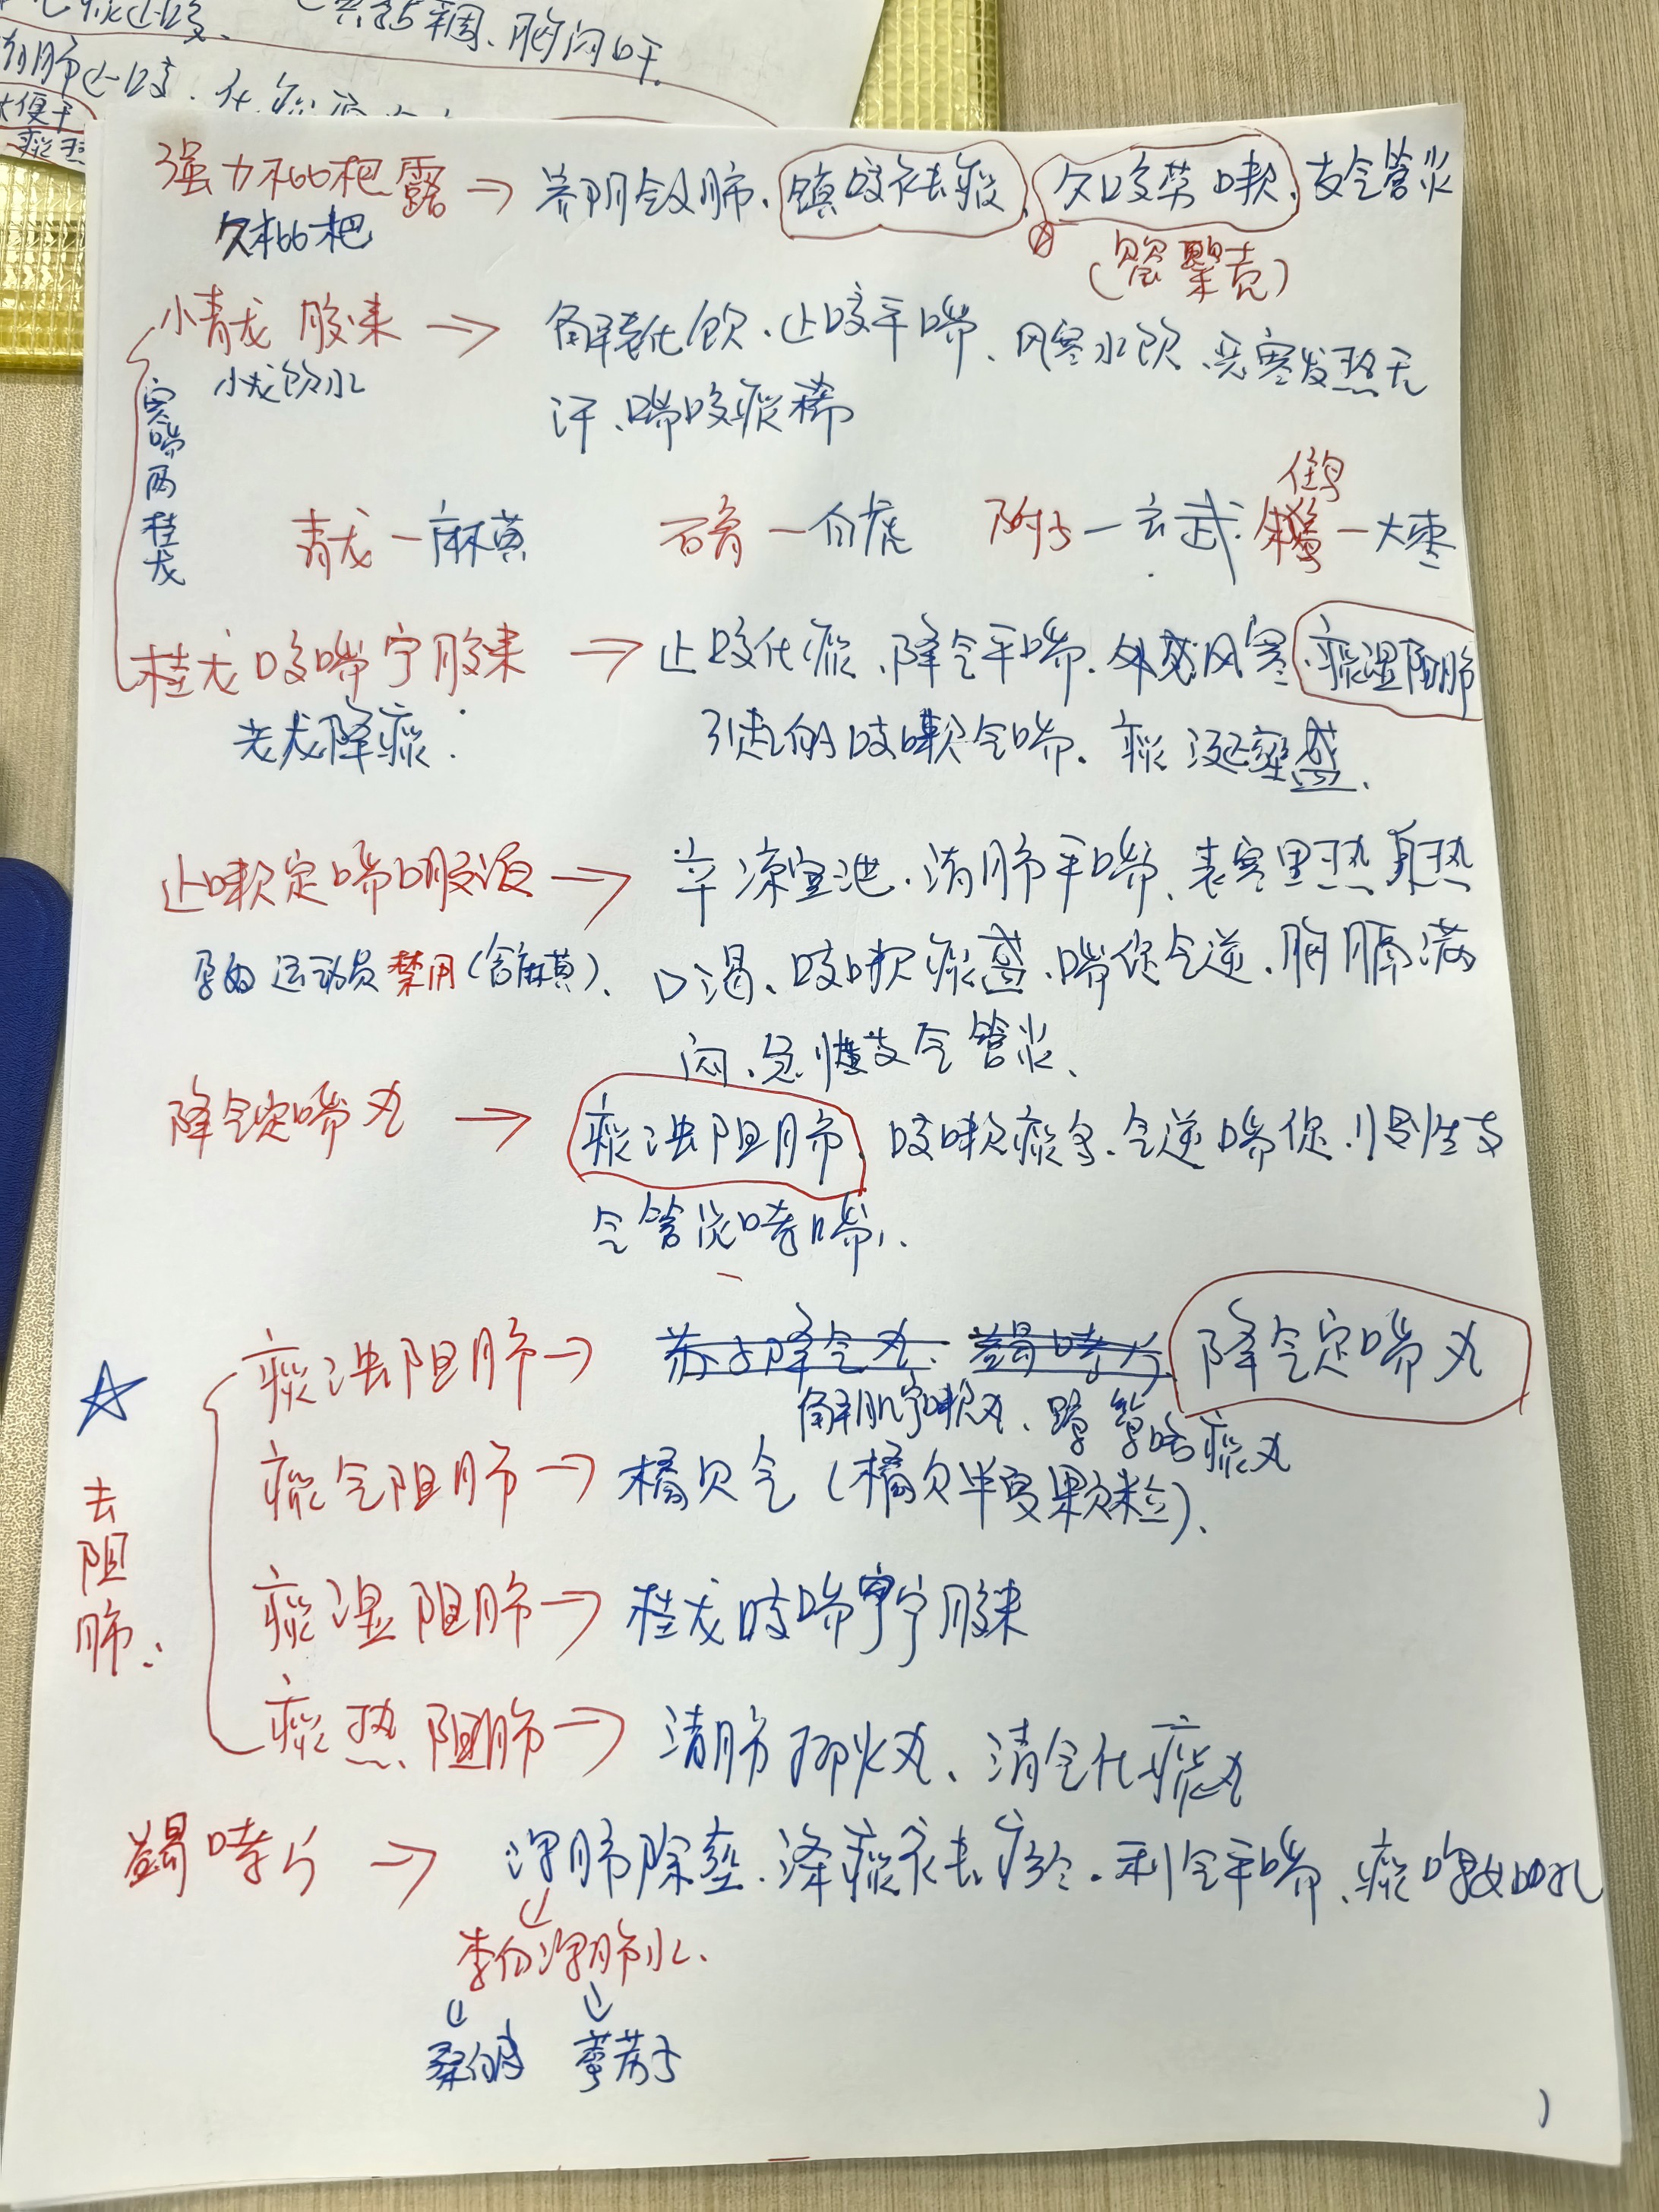 胸闷
清肺止咳.
大便干
强力枇杷露 → 养阴敛肺、镇咳祛痰、久咳劳嗽、支气管炎
久枇杷
(含罂粟壳)
小青龙胶囊 → 解表化饮、止咳平喘、风寒水饮、恶寒发热无
小龙饮水
汗、喘咳痰稀
寒喘两桂龙
青龙—麻黄 石膏—白虎 附子—玄武 朱雀—大枣
桂龙咳喘宁胶囊 → 止咳化痰、降气平喘、外感风寒、痰湿阻肺
老龙降痰. 引起的咳嗽气喘、痰涎壅盛、
止嗽定喘口服液 → 辛凉宣泄、清肺平喘、表寒里热身热
孕妇运动员禁用(含麻黄)、 口渴、咳嗽痰盛、喘促气逆、胸膈满
闷、急慢支气管炎、
降气定喘丸 → 痰浊阻肺、咳嗽痰多、气逆喘促、慢性支
气管炎哮喘、
痰浊阻肺 → 苏子降气丸、蠲哮片 降气定喘丸
解肌宁嗽丸、 痰丸
痰气阻肺 → 橘贝气(橘贝半夏颗粒)、
☆ 去阻肺、
痰湿阻肺 → 桂龙咳喘宁胶囊
痰热阻肺 → 清肺抑火丸、清气化痰丸
蠲哮片 → 泻肺除壅、涤痰祛瘀、利气平喘、痰
李白泻肺水、
桑白皮 葶苈子